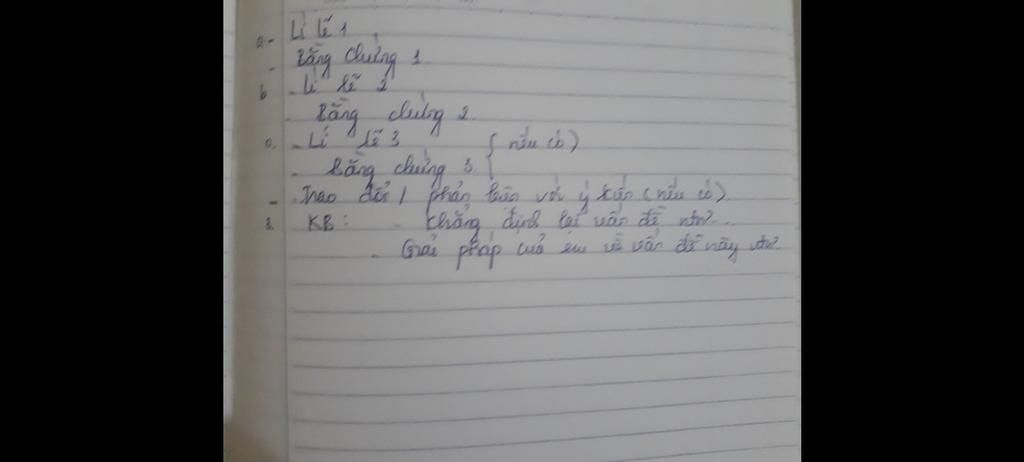 a - Lí lẽ 1
- Bằng chứng 1.
b - Lí lẽ 2
. Bằng chứng 2.
c. - Lí lẽ 3 { nếu có )
- Bằng chứng 3
- Trao đổi / phản biện với ý kiến (nếu có)
3. KB: - Khẳng định lại vấn đề như...
- Giải pháp của em về vấn đề này như